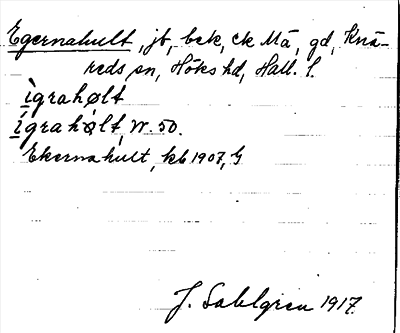 Egernahult, jb, bek, ck Mä, gd, Knä-
reds sn, Höks hd, Hall. l.
ìgrahølt
ígrahølt, W. 50.
Ekernahult, kb 1907, G
J. Sahlgren 1917.